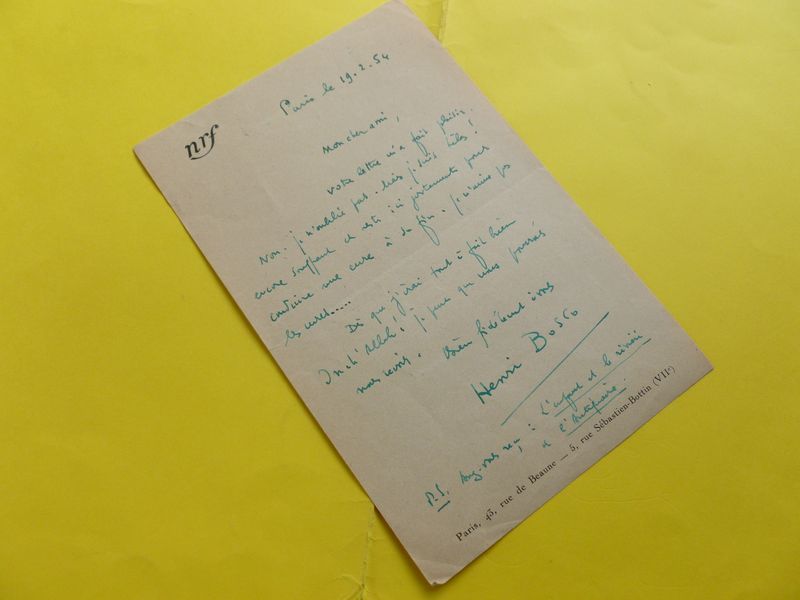 nrf
Paris le 19.2.54
Mon cher ami,
Votre lettre m'a fait plaisir.
Non, je n'oublie pas. Mais je suis hélas !
encore souffrant et resté ici justement pour
conduire une cure à sa fin. Je n'aime pas
les cures.....
Dès que j'irai tout à fait bien
Inch' Allah ! je pense que nous pourrons
nous revoir. Bien fidèlement à vous
Henri Bosco
P.S. Avez-vous reçu : L'enfant et la rivière
et l'Antiquaire.
Paris, 43, rue de Beaune — 5, rue Sébastien-Bottin (VIIe)